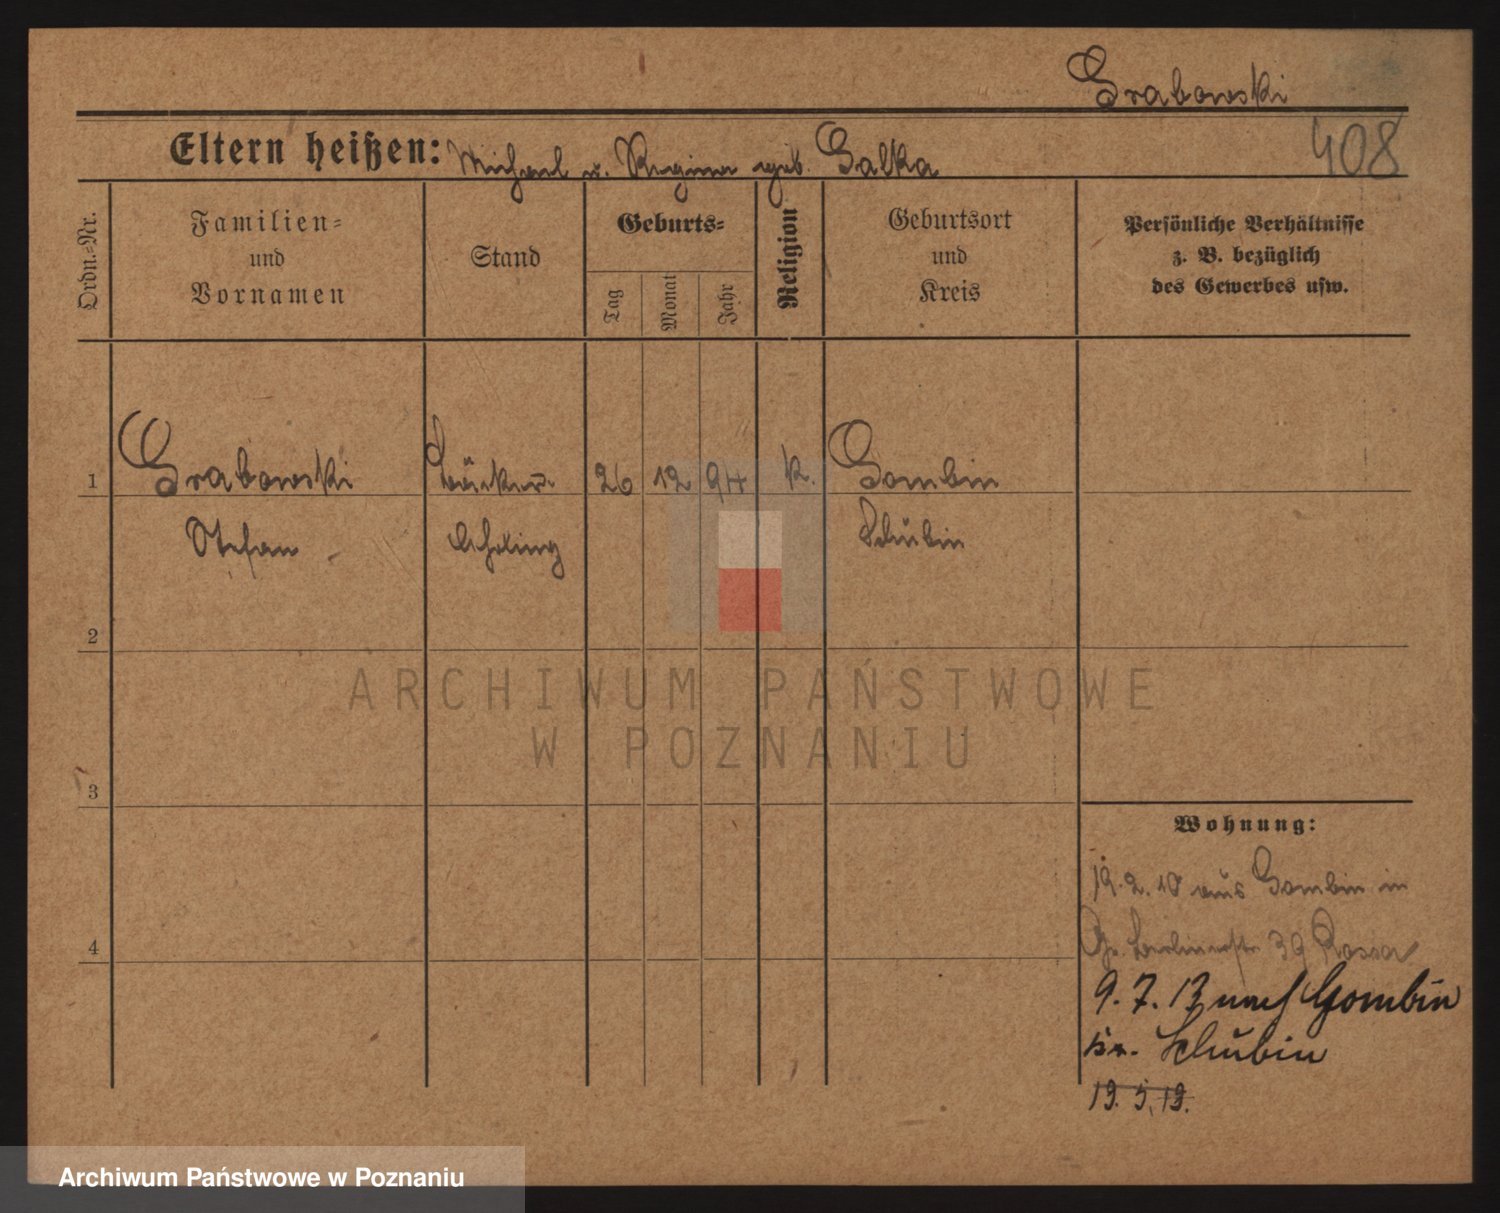 Grabowski
408
Eltern heißen: Michael u. Regina geb. Galka
Ordn.-Nr.
Familien-
und
Vornamen
Stand
Geburts-
Tag
Monat
Jahr
Religion
Geburtsort
und
Kreis
Persönliche Verhältnisse
z. B. bezüglich
des Gewerbes usw.
1 Grabowski Bäcker- 26 12 94 k. Gombin
Stefan Lehrling Schubin
2
3
4
Wohnung:
19.2.10 aus Gombin in
Berlinerstr. 39
9.7.13 nach Gombin
Kr. Schubin
19. 5. 19.
ARCHIWUM PAŃSTWOWE
W POZNANIU
Archiwum Państwowe w Poznaniu